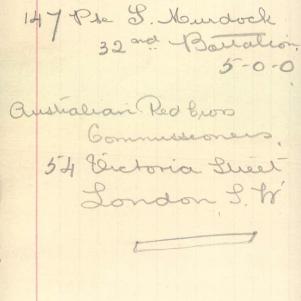 147 Pte S. Murdock
32nd Battalion
5-0-0
Australian Red Cross
Commissioners,
54 Victoria Street
London S.W